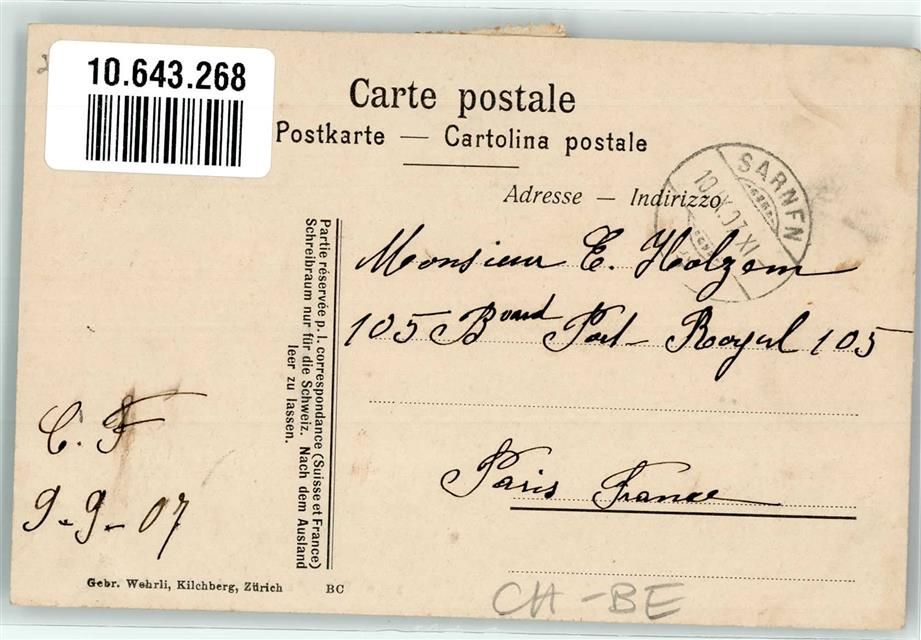 10.643.268
Carte postale
Postkarte — Cartolina postale
Adresse — Indirizzo
SARNEN
10.IX.07.XI
Monsieur E. Holzem
105 Bvard Port-Royal 105
Paris France
Partie réservée p. l. correspondance (Suisse et France)
Schreibraum nur für die Schweiz. Nach dem Ausland
leer zu lassen.
C. F
9-9-07
Gebr. Wehrli, Kilchberg, Zürich BC
CH-BE